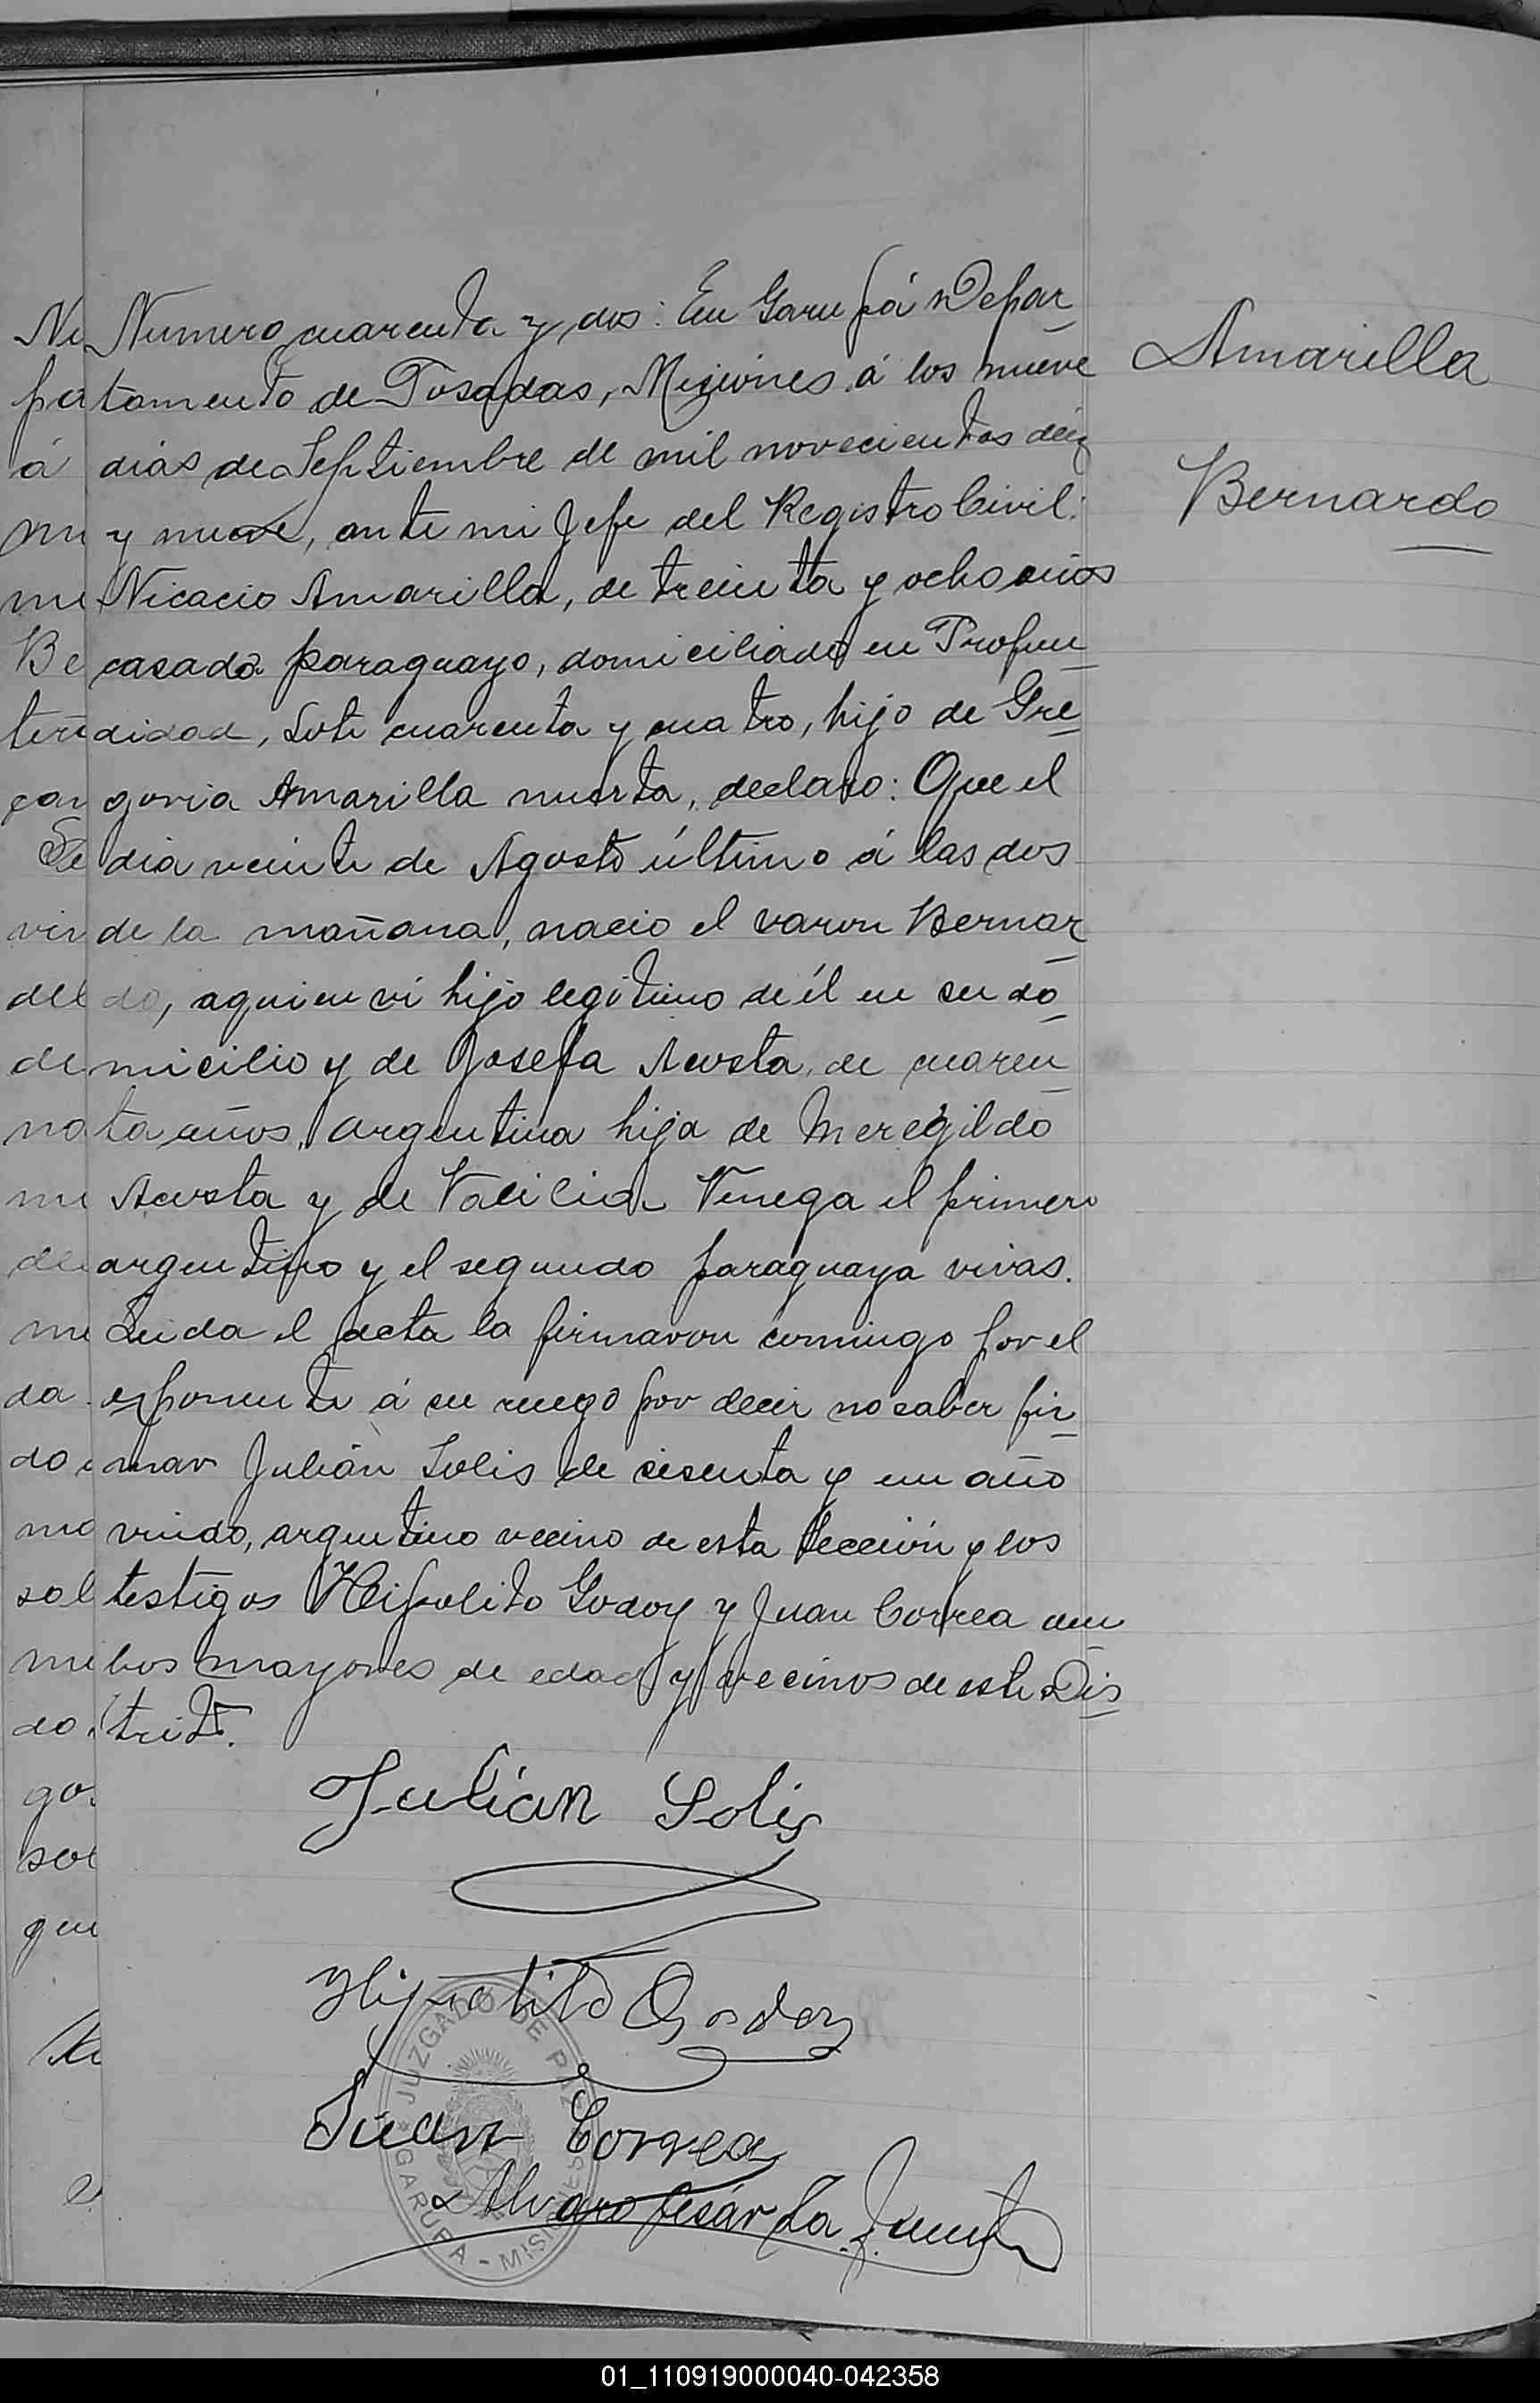 Numero cuarenta y dos: En Garupá Depar
tamento de Posadas, Misiones á los nueve
dias de Septiembre de mil novecientos diez
y nueve, ante mi Jefe del Registro Civil:
Nicacio Amarilla, de treinta y ocho años
casado paraguayo, domiciliado en Profun
didad, Lote cuarenta y cuatro, hijo de Gre
goria Amarilla muerta, declaro: Que el
dia veinte de Agosto último á las dos
de la mañana, nacio el varon Bernar
do, aquien ví hijo legitimo de él en su do
micilio y de Josefa Acosta, de cuaren
ta años, argentina hija de Meregildo
Acosta y de Valicia Venega el primero
argentino y el segundo paraguaya vivas.
Leida el acta la firmaron conmigo por el
exponente á su ruego por decir no saber fir
mar Julián Solis de sesenta y un año
viudo, argentino vecino de esta Sección y los
testigos Hipolito Godoy y Juan Correa am
bos mayores de edad y vecinos de este Dis
trito.
Amarilla
Bernardo
Julian Solis
Hipolito Godoy
Juan Correa
Alvaro Cesár La
JUZGADO DE PAZ
GARUPA - MISIONES
01_110919000040-042358